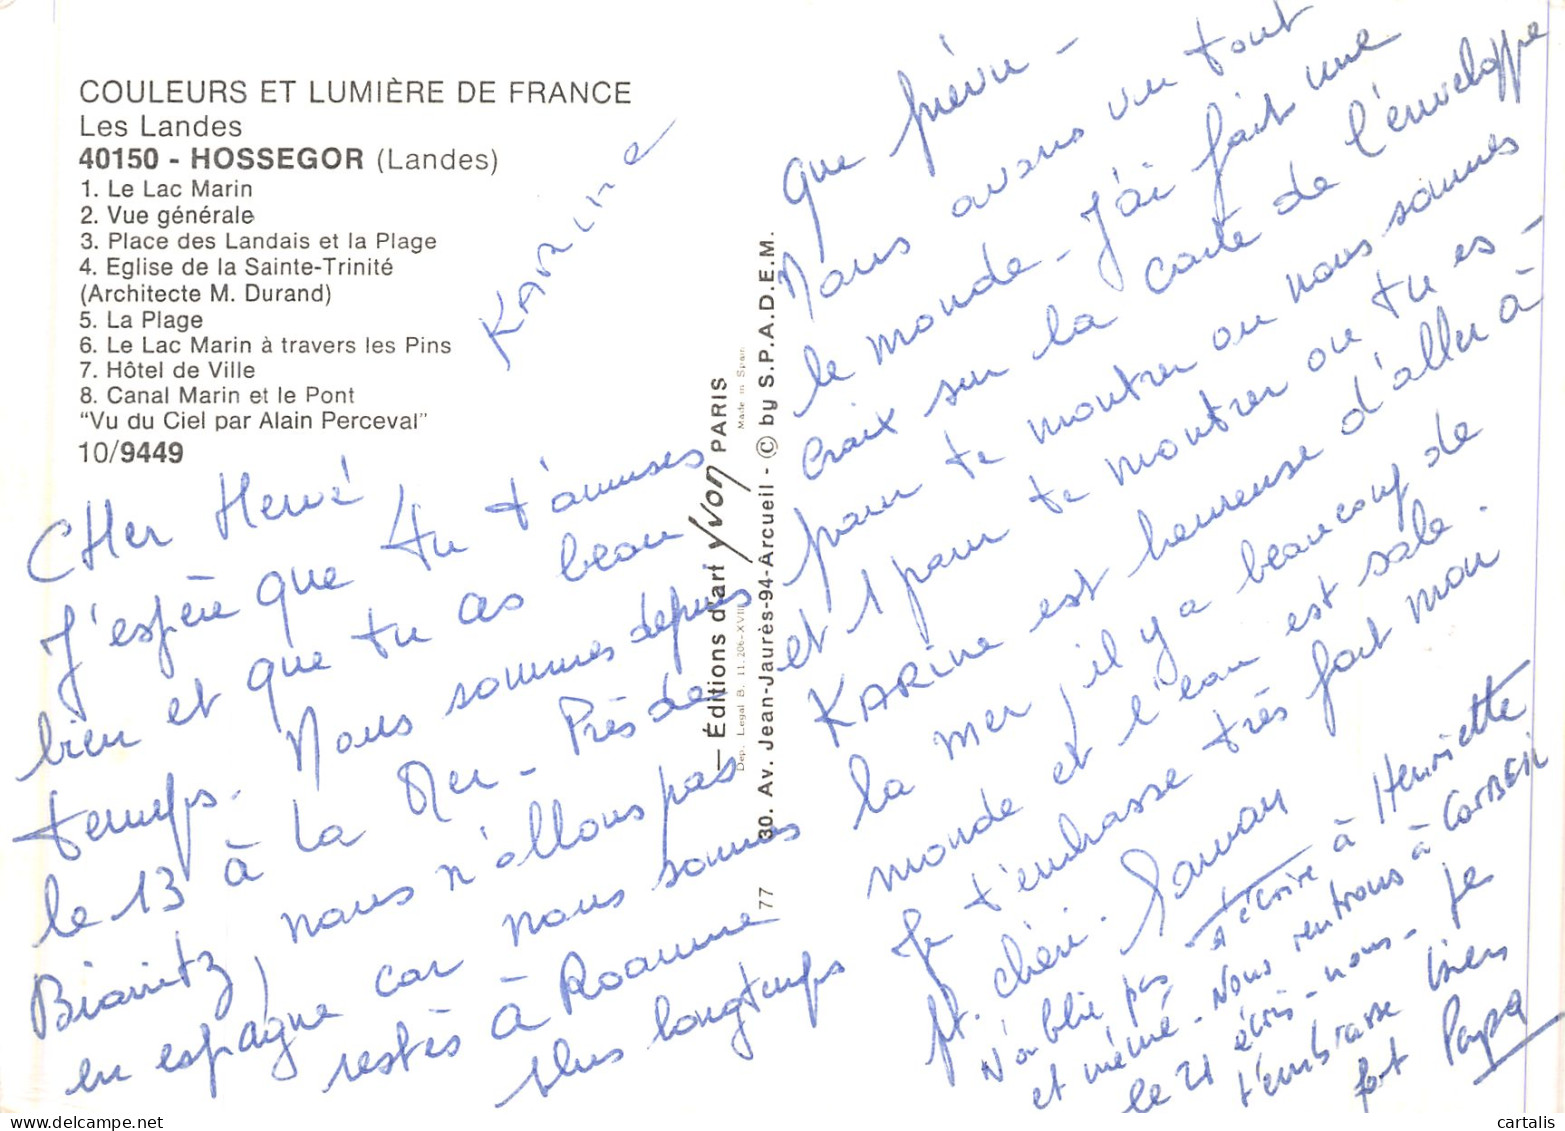 COULEURS ET LUMIÈRE DE FRANCE
Les Landes
40150 - HOSSEGOR (Landes)
1. Le Lac Marin
2. Vue générale
3. Place des Landais et la Plage
4. Eglise de la Sainte-Trinité
(Architecte M. Durand)
5. La Plage
6. Le Lac Marin à travers les Pins
7. Hôtel de Ville
8. Canal Marin et le Pont
"Vu du Ciel par Alain Perceval"
10/9449
KARINE
CHer Hervé
J'espère que tu t'amuses
bien et que tu as beau
temps. Nous sommes depuis
le 13 à La Mer - Près de
Biarritz, nous n'allons pas
en espagne car nous sommes
restés à Roanne
plus longtemps
— Éditions d'art yvon PARIS
Dep. Legal B. 11.206-XVIII
Made in Spain
30. Av. Jean-Jaurès-94-Arcueil - © by S.P.A.D.E.M.
77
que prévu -
Nous avons vu tout
le monde - J'ai fait une
croix sur la carte de l'enveloppe
pour te montrer ou nous sommes
et 1 pour te montrer ou tu es -
KARINE est heureuse d'aller à
la mer, il y a beaucoup de
monde et l'eau est sale.
Je t'embrasse très fort mon
pt. chéri. Maman
N'oublie pas d'écrire à Henriette
et mémé - Nous rentrons à CORBEIL
le 21 écris-nous - je
t'embrasse bien
fort Papa
cartalis